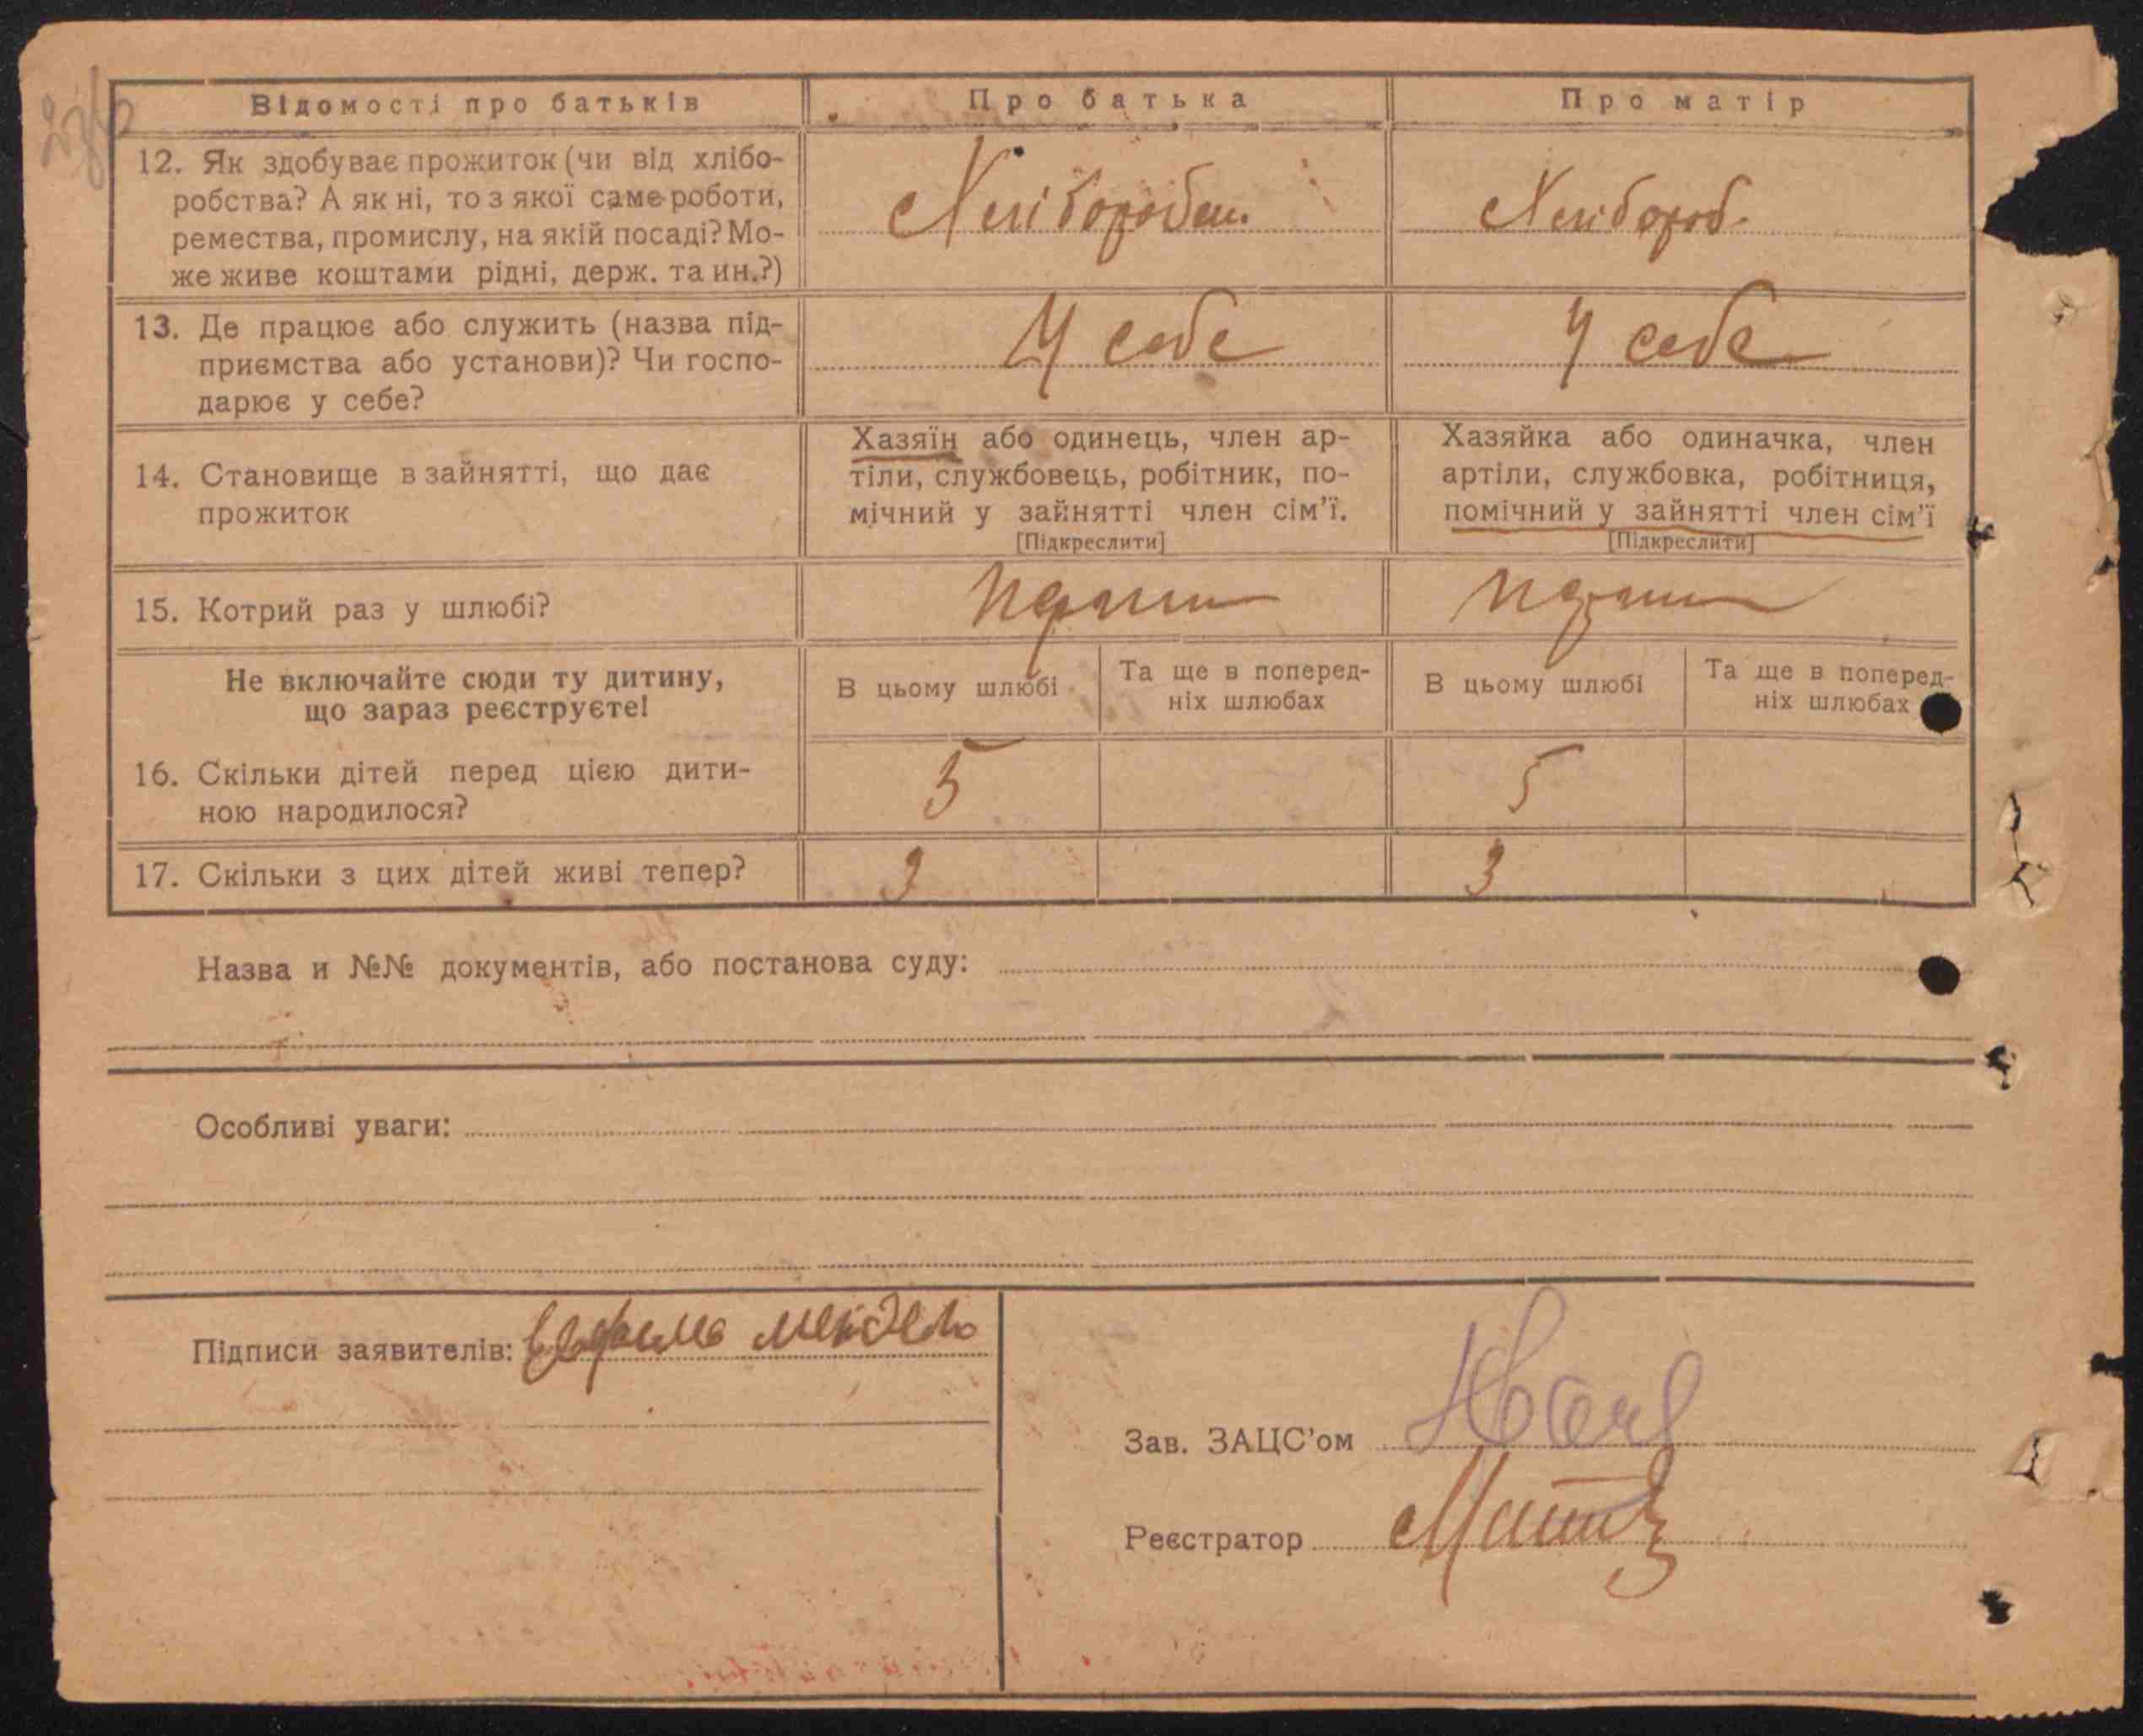 Відомості про батьків
Про батька
Про матір
12. Як здобуває прожиток (чи від хлібо-
робства? А як ні, то з якої саме роботи,
ремества, промислу, на якій посаді? Мо-
же живе коштами рідні, держ. та ин.?)
Хлібороб
Хлібороб.
13. Де працює або служить (назва під-
приємства або установи)? Чи госпо-
дарює у себе?
У себе
У себе
14. Становище в зайнятті, що дає
прожиток
Хазяїн або одинець, член ар-
тіли, службовець, робітник, по-
мічний у зайнятті член сім'ї.
[Підкреслити]
Хазяйка або одиначка, член
артіли, службовка, робітниця,
помічний у зайнятті член сім'ї
[Підкреслити]
15. Котрий раз у шлюбі?
Не включайте сюди ту дитину,
що зараз реєструєте!
В цьому шлюбі
Та ще в поперед-
ніх шлюбах
В цьому шлюбі
Та ще в поперед-
ніх шлюбах
16. Скільки дітей перед цією дити-
ною народилося?
5
5
17. Скільки з цих дітей живі тепер?
3
3
Назва и №№ документів, або постанова суду:
Особливі уваги:
Підписи заявителів:
Зав. ЗАЦС'ом
Реєстратор